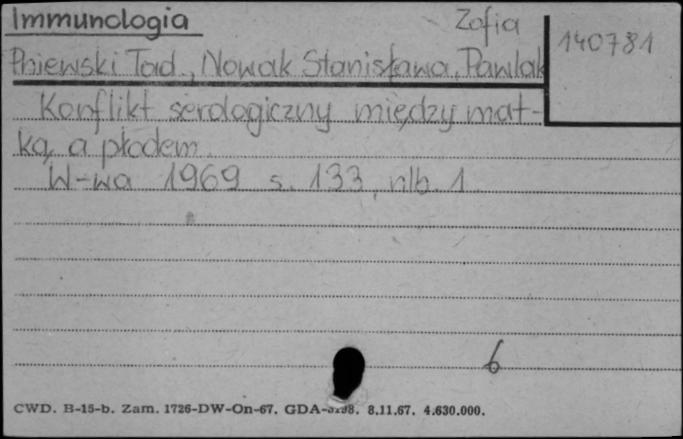 Immunologia
Zofia
140781
Pniewski Tad., Nowak Stanisława, Pawlak
Konflikt serologiczny między mat-
ką, a płodem.
W-wa 1969 s. 133, nlb. 1.
6
CWD. B-15-b. Zam. 1726-DW-On-67. GDA- 8.11.67. 4.630.000.